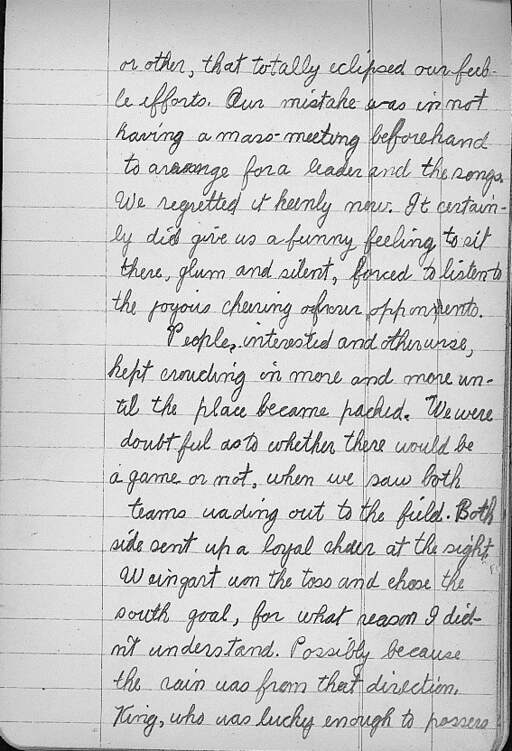 or other, that totally eclipsed our feeb-
le efforts. Our mistake was in not
having a mass-meeting beforehand
to arrange for a leader and the songs.
We regretted it keenly now. It certain-
ly did give us a funny feeling to sit
there, glum and silent, forced to listen to
the joyous cheering of our opponents.
People, interested and otherwise,
kept crowding in more and more un-
til the place became packed. We were
doubtful as to whether there would be
a game or not, when we saw both
teams wading out to the field. Both
side sent up a loyal cheer at the sight.
Weingart won the toss and chose the
south goal, for what reason I did-
n't understand. Possibly because
the rain was from that direction.
King, who was lucky enough to possess